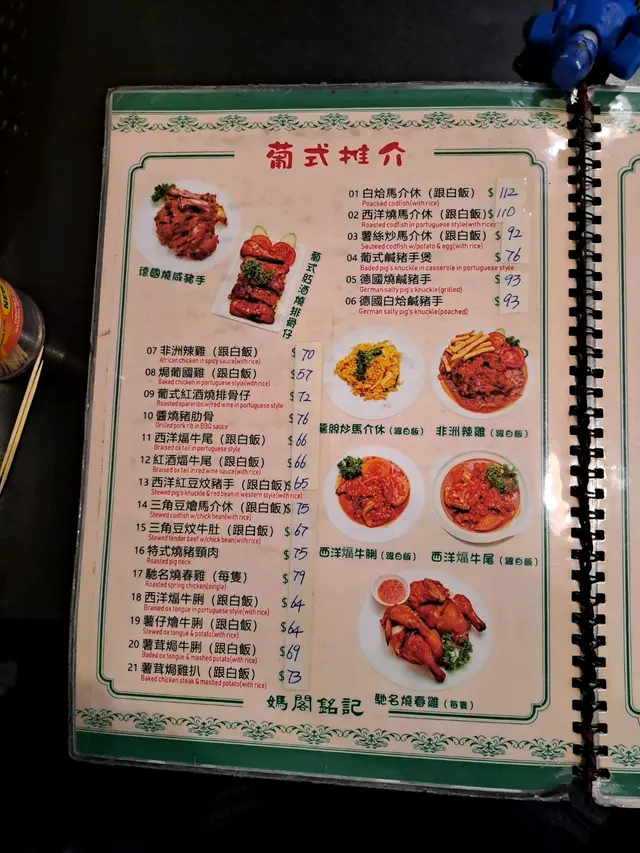 葡式推介
德國燒咸豬手
葡式紅酒燒排骨仔
01 白烚馬介休（跟白飯） $ 112
Poacked codfish(with rice)
02 西洋燒馬介休（跟白飯）$ 110
Roasted codfish in portuguese style(with rice)
03 薯絲炒馬介休（跟白飯） $ 92
Sauteed codfish w/potato & egg(with rice)
04 葡式鹹豬手煲 $ 76
Baded pig's knuckle in casserole in portuguese style
05 德國燒鹹豬手 $ 93
German salty pig's knuckle(grilled)
06 德國白烚鹹豬手 $ 93
German salty pig's knuckle(poached)
07 非洲辣雞（跟白飯） $ 70
African chicken in spicy sauce(with rice)
08 焗葡國雞（跟白飯） $ 57
Baked chicken in portuguese style(with rice)
09 葡式紅酒燒排骨仔 $ 72
Roasted spareribs w/red wine in portuguese style
10 醬燒豬肋骨 $ 76
Grilled pork rib in BBQ sauce
11 西洋煏牛尾（跟白飯） $ 66
Braised ox tail in portuguese style
12 紅酒煏牛尾（跟白飯） $ 66
Braised ox tail in red wine sauce(with rice)
13 西洋紅豆炆豬手（跟白飯）$ 65
Stewed pig's knuckle & red bean in western style(with rice)
14 三角豆燴馬介休（跟白飯）$ 75
Stewed codfish w/chick bean(with rice)
15 三角豆炆牛肚（跟白飯） $ 67
Stewed tender beef w/chick bean(with rice)
16 特式燒豬頸肉 $ 75
Roasted pig neck
17 馳名燒春雞（每隻） $ 79
Roasted spring chicken(single)
18 西洋煏牛脷（跟白飯） $ 64
Braised ox tongue in portuguese style(with rice)
19 薯仔燴牛脷（跟白飯） $ 64
Stewed ox tongue & potato(with rice)
20 薯茸焗牛脷（跟白飯） $ 69
Baded ox tongue & mashed potato(with rice)
21 薯茸焗雞扒（跟白飯） $ 73
Baked chicken steak & mashed potato(with rice)
炒馬介休（跟白飯）
非洲辣雞（跟白飯）
西洋煏牛脷（跟白飯）
西洋煏牛尾（跟白飯）
馳名燒春雞（每隻）
媽閣銘記